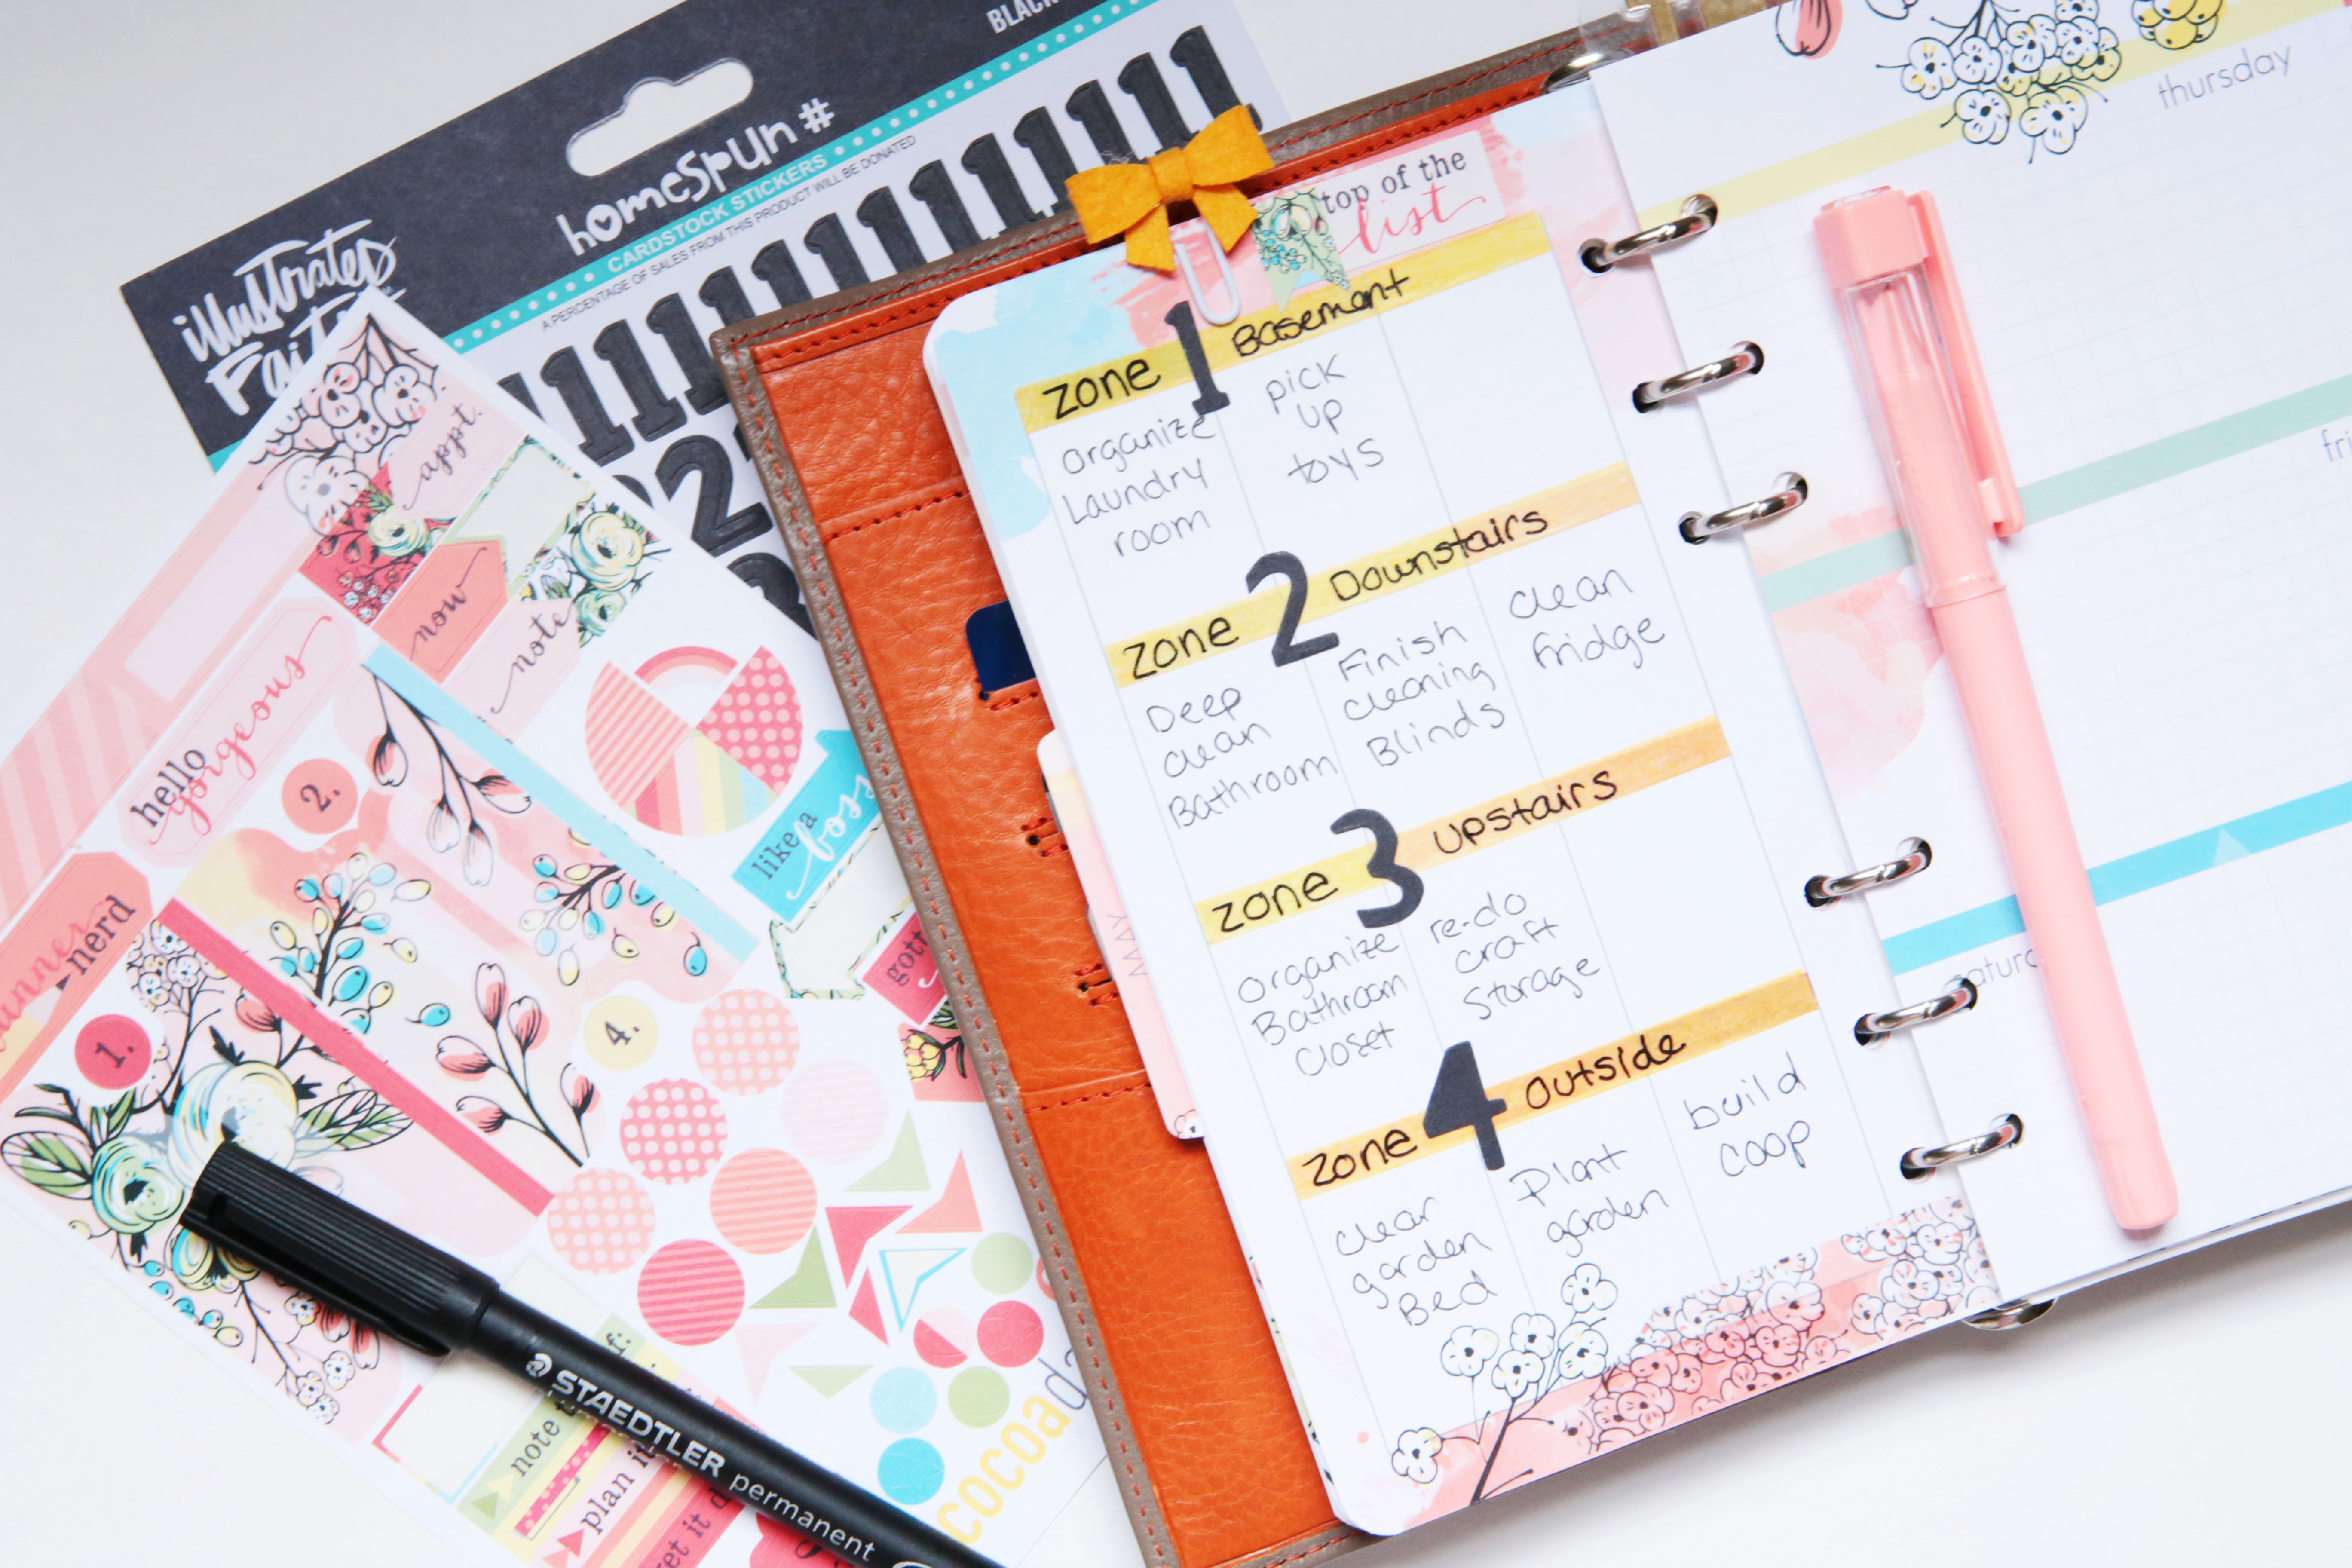 BLACK
homespun #
CARDSTOCK STICKERS
A PERCENTAGE OF SALES FROM THIS PRODUCT WILL BE DONATED
illustrated
Faith
1 1 1 1 1 1 1 1 1 1 1 1 1
2 2
appt.
now
note
hello
gorgeous
2.
like a
boss
nerd
1.
4.
note
plan it
cocoa
STAEDTLER permanent
MAY
top of the
list
zone 1 Basement
Organize
Laundry
room
pick
up
toys
zone 2 Downstairs
Deep
clean
Bathroom
Finish
cleaning
Blinds
clean
fridge
zone 3 upstairs
Organize
Bathroom
closet
re-do
craft
storage
zone 4 outside
clear
garden
Bed
Plant
garden
build
coop
thursday